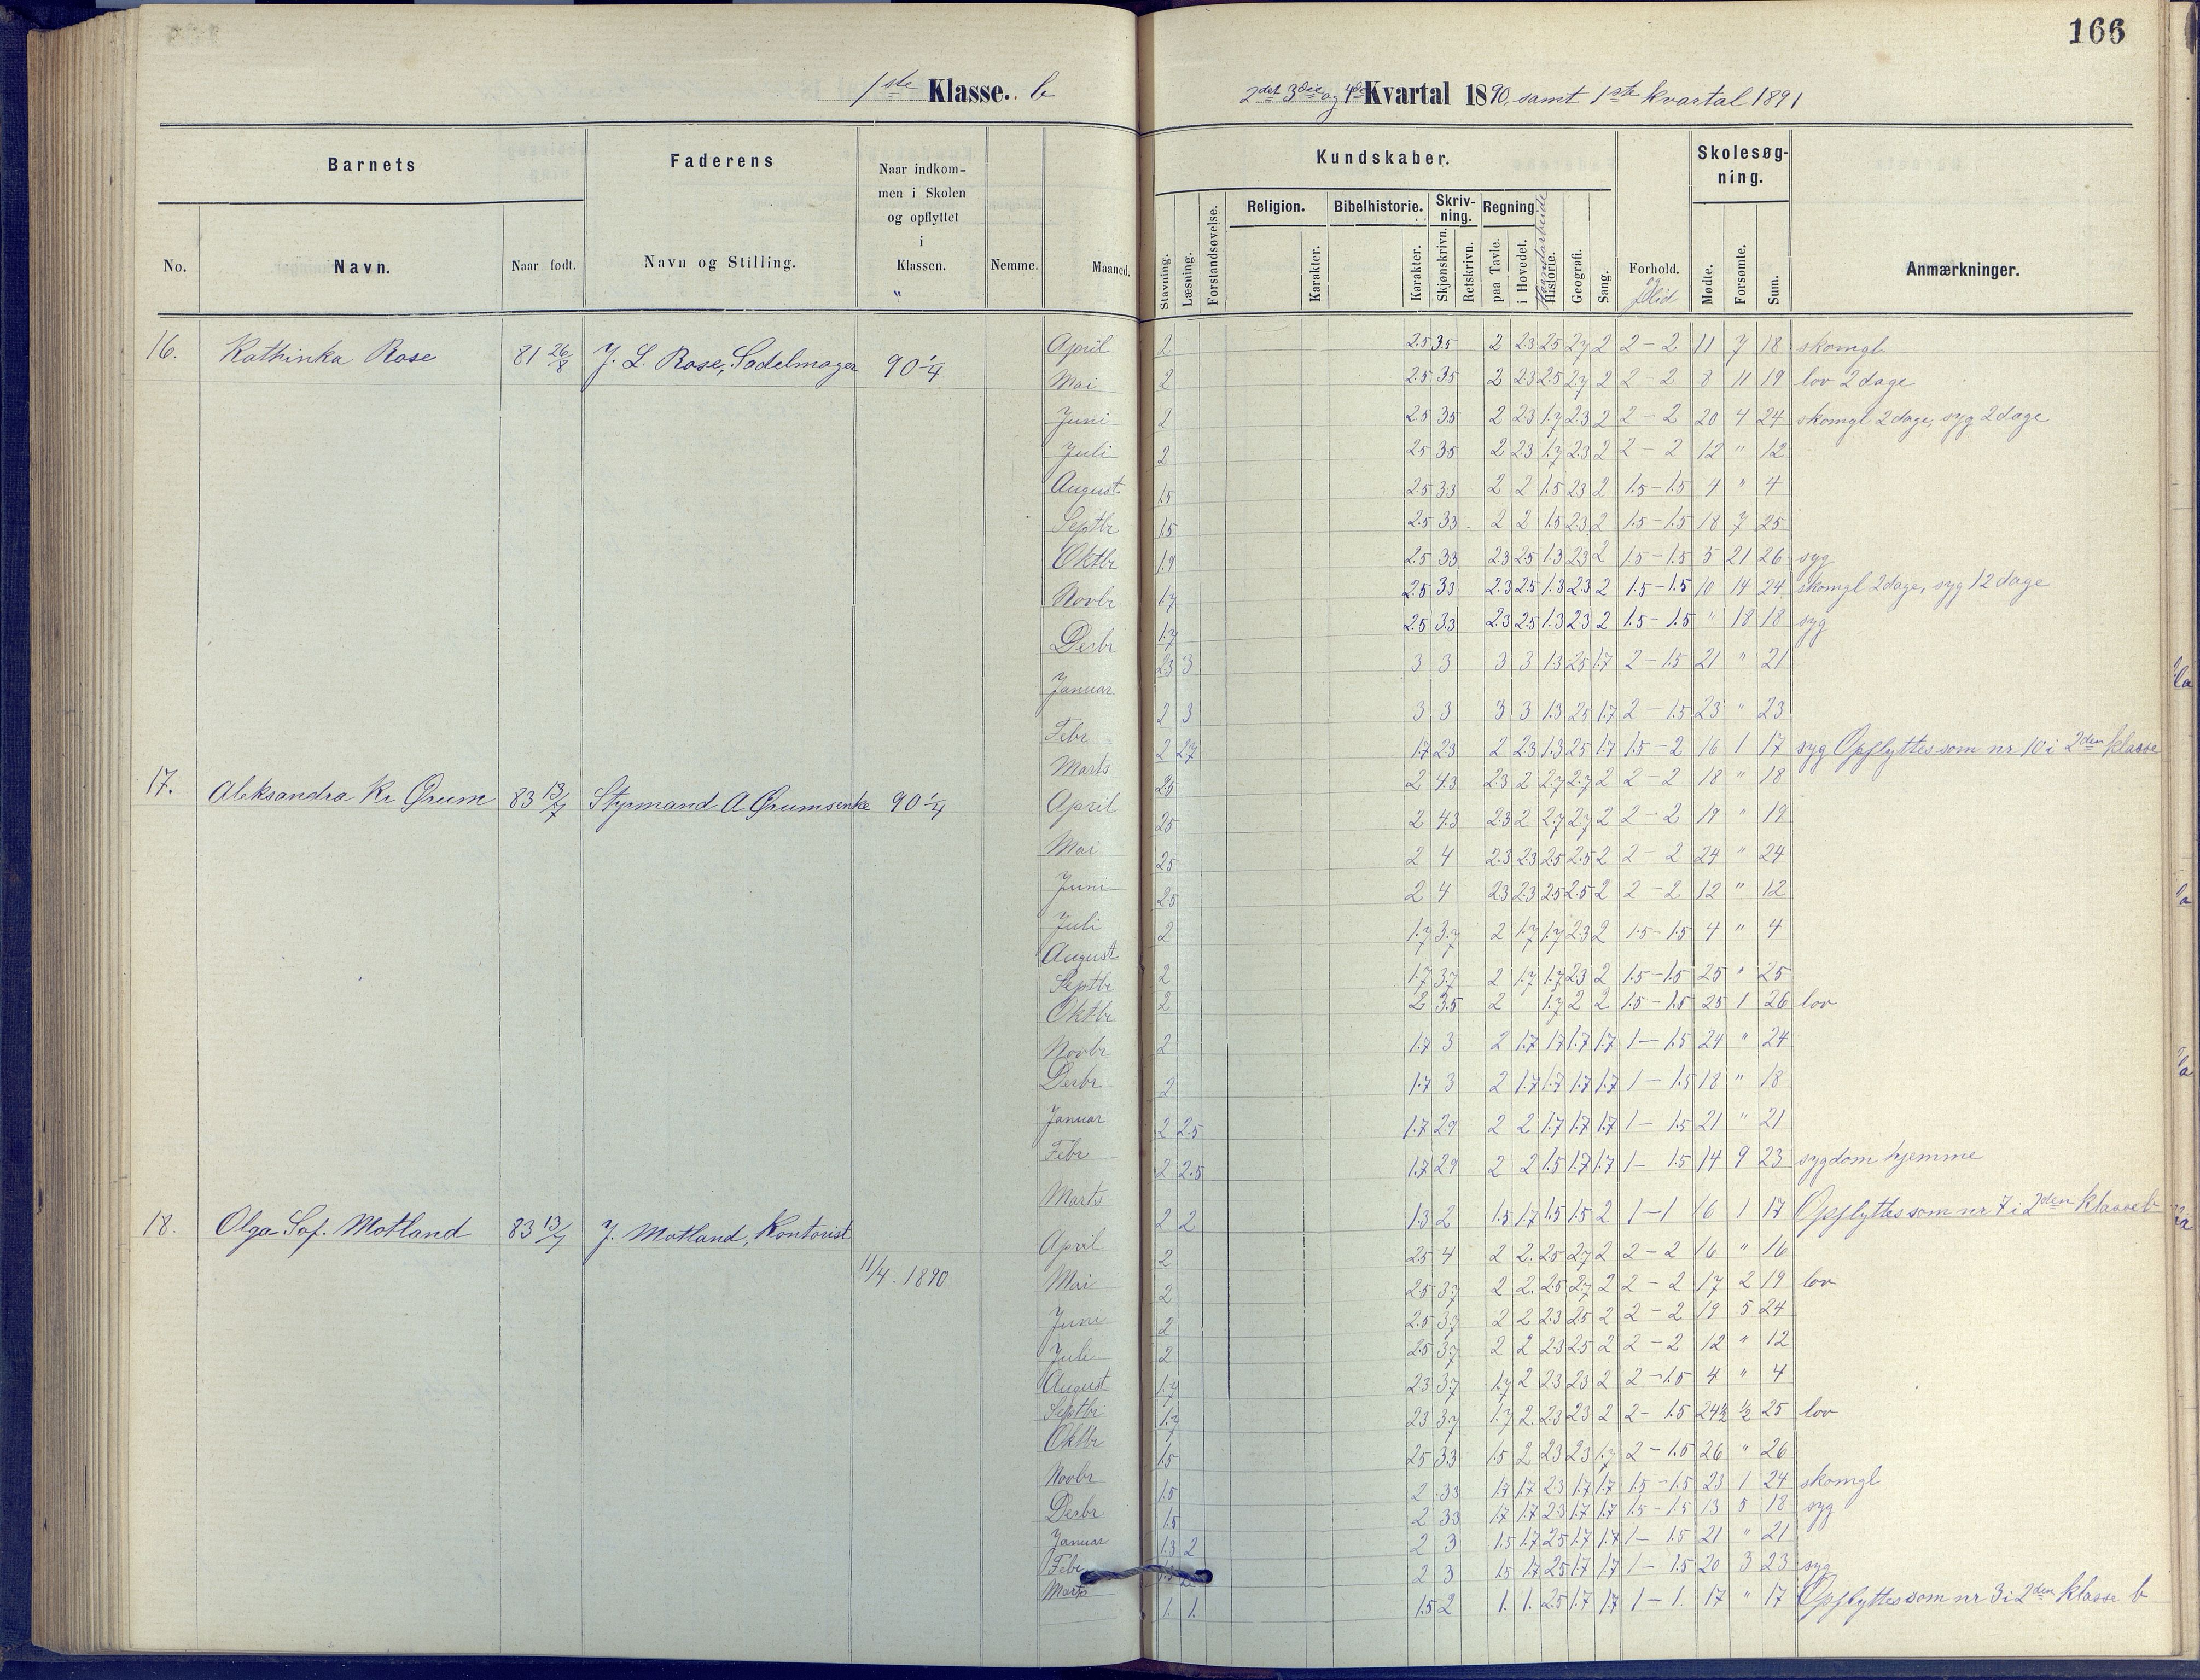 166
1ste Klasse. b
2det 3die og 4de Kvartal 1890, samt 1ste kvartal 1891
Barnets
Faderens
Naar indkom-
men i Skolen
og opflyttet
i
Klassen.
"
Kundskaber.
Skolesøg-
ning.
No.
Navn.
Naar født.
Navn og Stilling.
Nemme.
Maaned.
Stavning.
Læsning.
Forstandsøvelse.
Religion.
Karakter.
Bibelhistorie.
Karakter.
Skriv-
ning.
Skjønskrivn.
Retskrivn.
Regning
paa Tavle.
i Hovedet.
Haandarbeide
Historie.
Geografi.
Sang.
Forhold.
og flid
Mødte.
Forsømte.
Sum.
Anmærkninger.
16. Kathinka Rose 81 26/8 J. L. Rose, Sadelmager 90 1/4
April 2 2.5 3.5 2 2.3 2.5 2.7 2 2-2 11 7 18 skomgl
Mai 2 2.5 3.5 2 2.3 2.5 2.7 2 2-2 8 11 19 lov 2 dage
Juni 2 2.5 3.5 2 2.3 1.7 2.3 2 2-2 20 4 24 skomgl 2 dage, syg 2 dage
Juli 2 2.5 3.5 2 2.3 1.7 2.3 2 2-2 12 " 12
August 1.5 2.5 3.3 2 2 1.5 2.3 2 1.5-1.5 4 " 4
Septbr 1.5 2.5 3.3 2 2 1.5 2.3 2 1.5-1.5 18 7 25
Oktbr 1.9 2.5 3.3 2.3 2.5 1.3 2.3 2 1.5-1.5 5 21 26 syg
Novbr 1.7 2.5 3.3 2.3 2.5 1.3 2.3 2 1.5-1.5 10 14 24 skomgl 2 dage, syg 12 dage
Desbr 1.7 2.5 3.3 2.3 2.5 1.3 2.3 2 1.5-1.5 " 18 18 syg
Januar 2.3 3 3 3 3 3 1.3 2.5 1.7 2-1.5 21 " 21
Febr 2 3 3 3 3 3 1.3 2.5 1.7 2-1.5 23 " 23
Marts 2 2.7 1.7 2.3 2 2.3 1.3 2.5 1.7 1.5-2 16 1 17 syg Opflyttes som nr 10 i 2den klasse
17. Aleksandra Kr Ørum 83 13/7 Styrmand A Ørums enke 90 1/4
April 2.5 2 4.3 2.3 2 2.7 2.7 2 2-2 18 " 18
Mai 2.5 2 4.3 2.3 2 2.7 2.7 2 2-2 19 " 19
Juni 2.5 2 4 2.3 2.3 2.5 2.5 2 2-2 24 " 24
Juli 2.5 2 4 2.3 2.3 2.5 2.5 2 2-2 12 " 12
August 2 1.7 3.7 2 1.7 1.7 2.3 2 1.5-1.5 4 " 4
Septbr 2 1.7 3.7 2 1.7 1.7 2.3 2 1.5-1.5 25 " 25
Oktbr 2 2 3.5 2 1.7 2 2 1.5-1.5 25 1 26 lov
Novbr 2 1.7 3 2 1.7 1.7 1.7 1.7 1-1.5 24 " 24
Desbr 2 1.7 3 2 1.7 1.7 1.7 1.7 1-1.5 18 " 18
Januar 2 2.5 1.7 2.9 2 2 1.7 1.7 1.7 1-1.5 21 " 21
Febr 2 2.5 1.7 2.9 2 2 1.5 1.7 1.7 1-1.5 14 9 23 sygdom hjemme
Marts 2 2 1.3 2 1.5 1.7 1.5 1.5 2 1-1 16 1 17 Opflyttes som nr 7 i 2den klasse b
18. Olga Sof. Motland 83 13/7 J. Motland, Kontorist 11/4. 1890
April 2 2.5 4 2 2. 2.5 2.7 2 2-2 16 " 16
Mai 2 2.5 3.7 2 2. 2.5 2.7 2 2-2 17 2 19 lov
Juni 2 2.5 3.7 2 2 2.3 2.5 2 2-2 19 5 24
Juli 2 2.5 3.7 2 2 2.3 2.5 2 2-2 12 " 12
August 1.7 2.3 3.7 1.7 2 2.3 2.3 2 2-1.5 4 " 4
Septbr 1.7 2.3 3.7 1.7 2. 2.3 2.3 2 2-1.5 24½ ½ 25 lov
Oktbr 1.5 2.5 3.3 1.5 2 2.3 2.3 1.7 2-1.5 26 " 26
Novbr 1.5 2 3.3 1.7 1.7 2.3 1.7 1.7 1.5-1.5 23 1 24 skomgl
Desbr 1.5 2 3.3 1.7 1.7 2.3 1.7 1.7 1.5-1.5 13 5 18 syg
Januar 1.3 2 2 3 1.5 1.7 2.5 1.7 1.7 1-1.5 21 " 21
Febr 2 3 1.5 1.7 2.5 1.7 1.7 1-1.5 20 3 23 syg
Marts 1. 1. 1.5 2 1. 1. 2.5 1.7 1.7 1-1. 17 " 17 Opflyttes som nr 3 i 2den klasse b